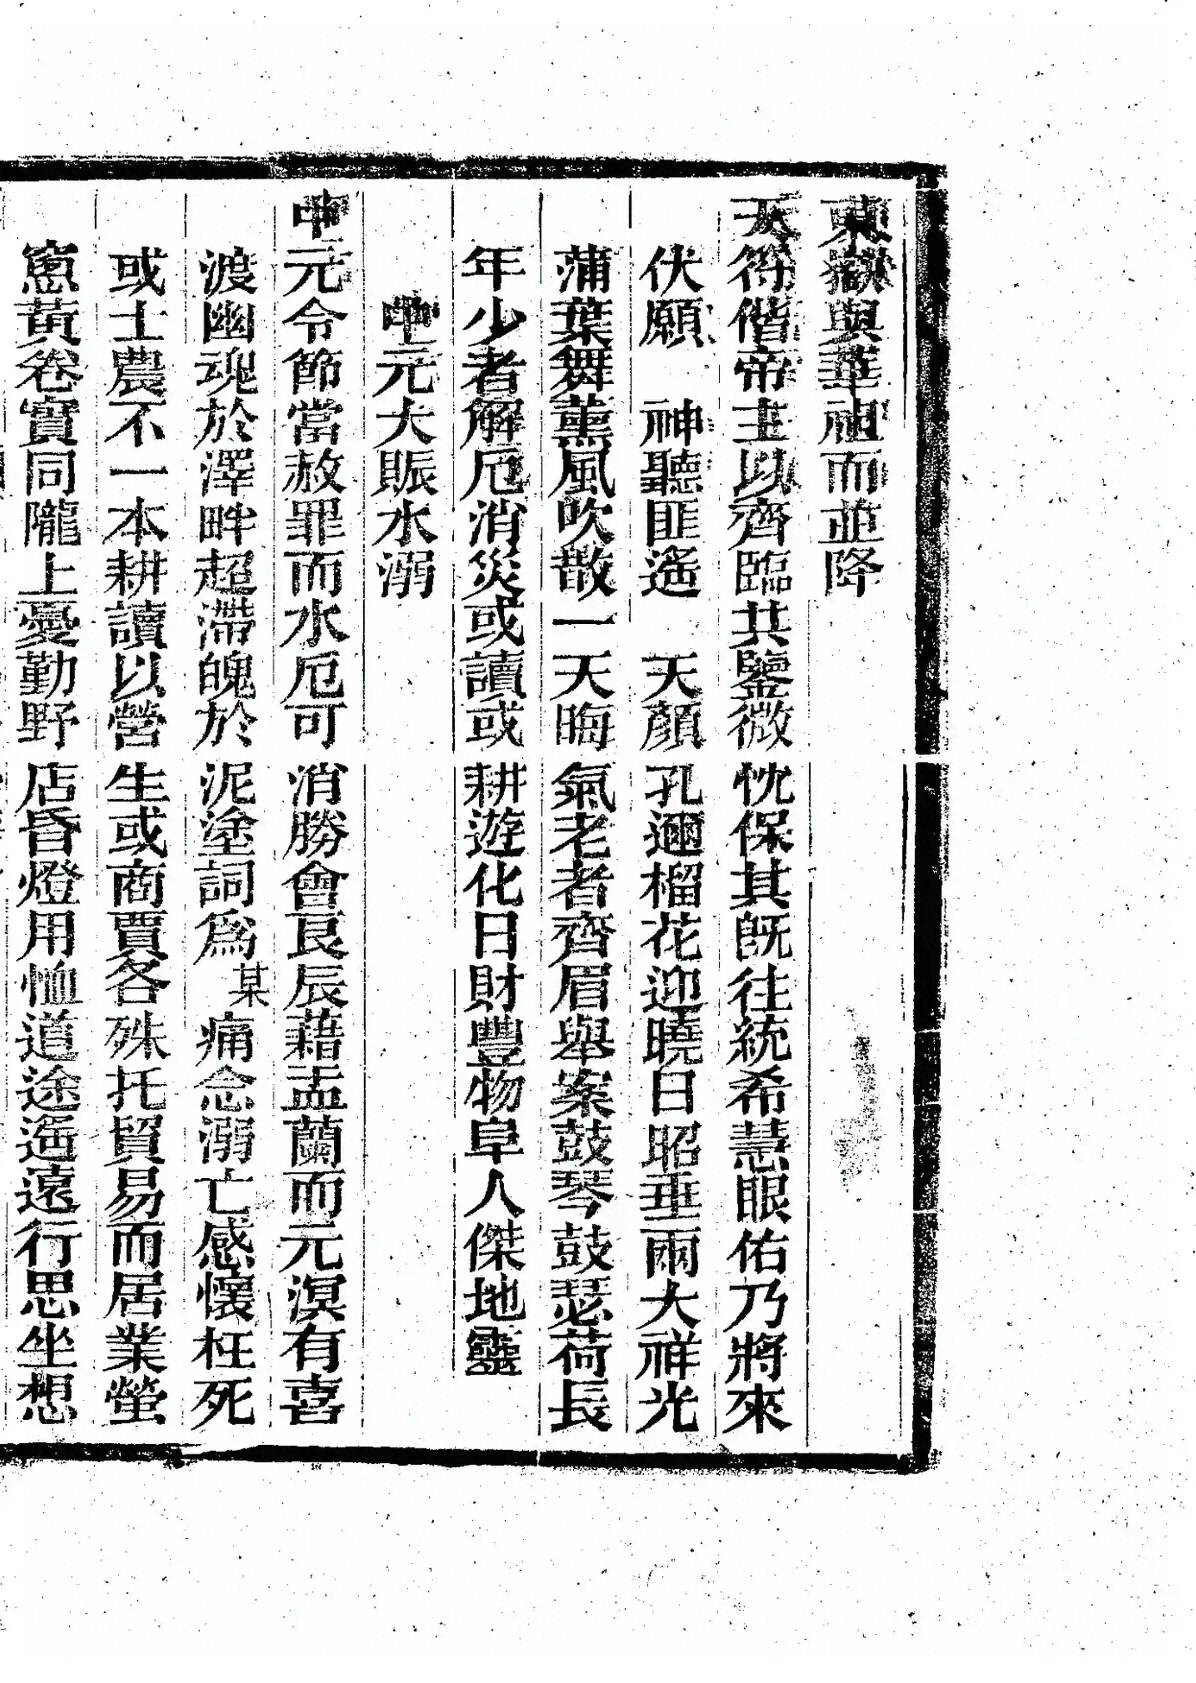 東嶽與華祖而並降
天符偕帝主以齊臨共鑒微忱保其既往統希慧眼佑乃將來
伏願 神聽匪遙 天顏孔邇榴花迎曉日昭垂兩大祥光
蒲葉舞薰風吹散一天晦氣老者齊眉舉案鼓琴鼓瑟荷長
年少者解厄消災或讀或耕遊化日財豐物阜人傑地靈
中元大賑水溺
中元令節當赦罪而水厄可消勝會良辰藉盂蘭而元溟有喜
渡幽魂於澤畔超滯魄於泥塗詞為某痛念溺亡感懷枉死
或士農不一本耕讀以營生或商賈各殊托貿易而居業螢
窗黃卷實同隴上憂勤野店昏燈用恤道途遙遠行思坐想